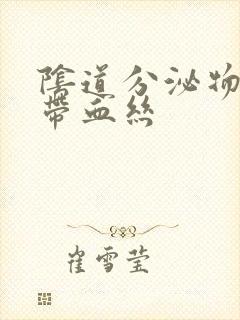 陰道分泌物
帶血絲
崔雪莹